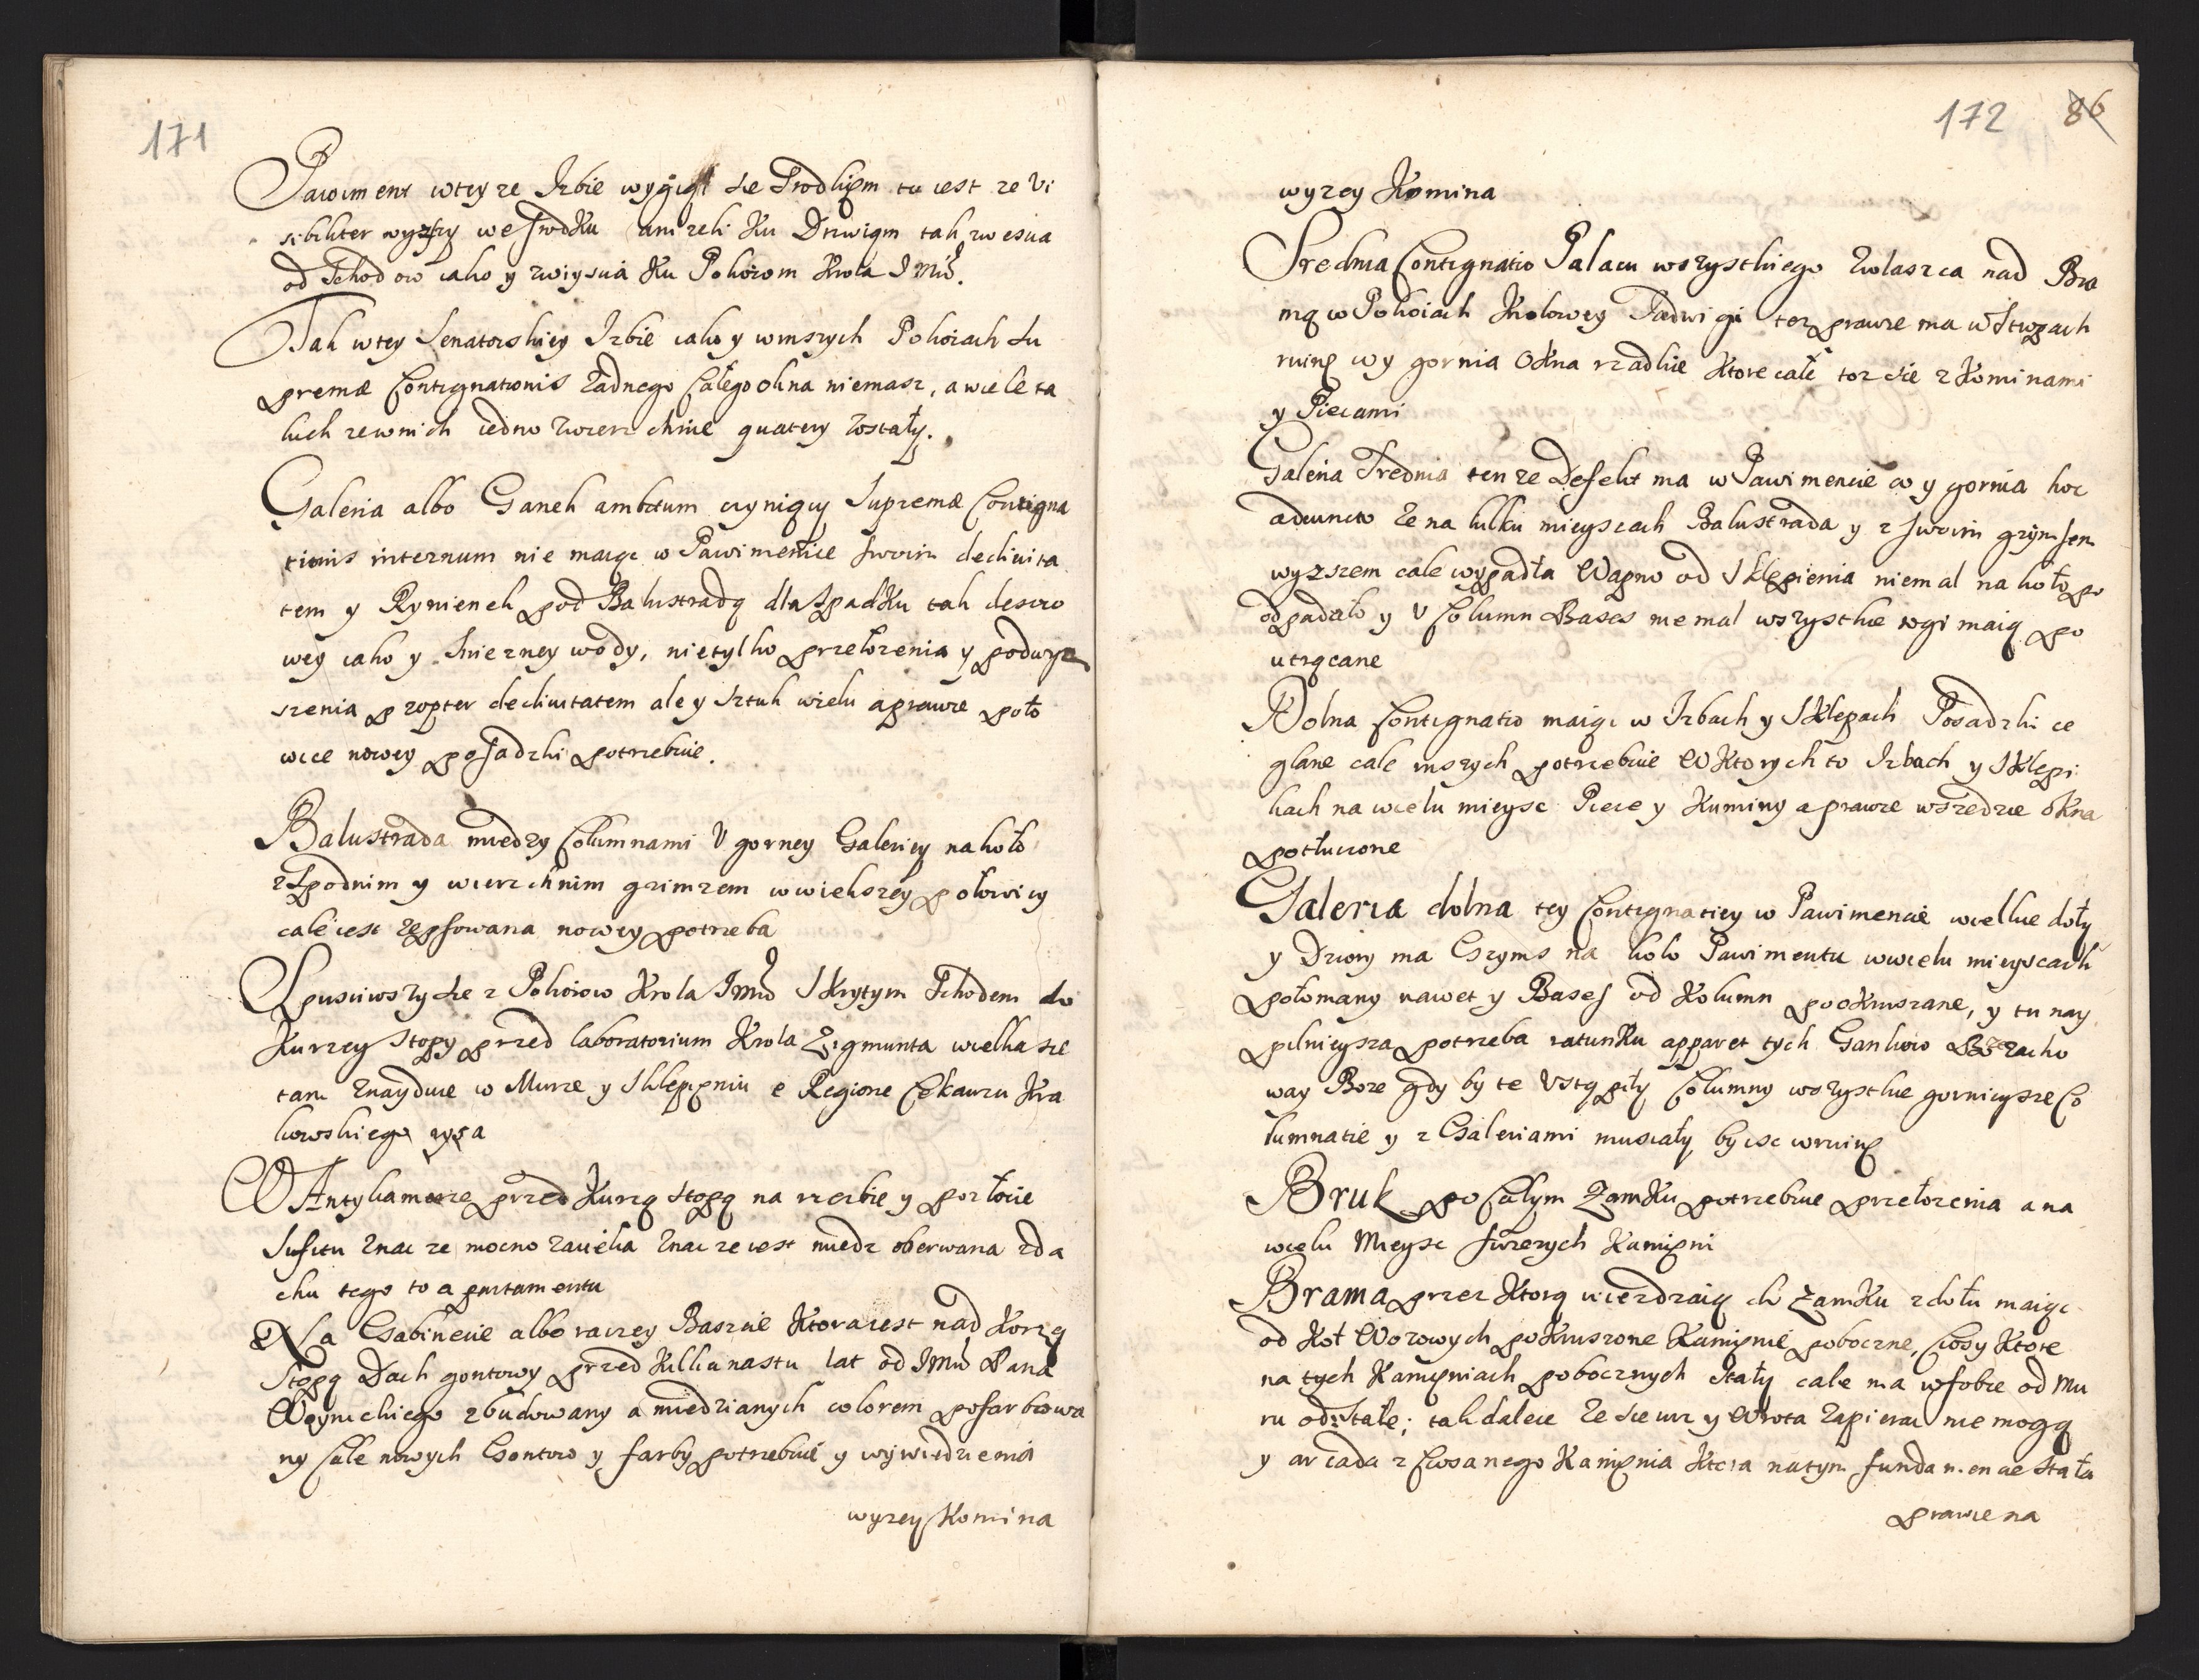 171
Pawiment wteyze Izbie wygiął sie Srodkiem tu iest ze vi
sibiliter wyzszy we srodku anizeli ku Drzwiom tak zwescia
od Schodow iako y zwiyscia Ku Pokoiom Krola JMći.
Tak wtey Senatorskiey Izbie iako y winszych Pokoiach Su
premæ Contignationis zadnego Całego okna niemasz, a wiele ta
kich ze wnich iedno zwierzchnie quatery zostały.
Galeria albo Ganek ambitum czyniący Supremæ Contigna
tionis internum nie maiąc w Pawimencie swoim declivita
tem y Rynienek pod Balustradą dla Spadku tak desczo
wey iako y Snieżney wody, nietylko przełożenia y podwyz
szenia propter declivitatem ale y Sztuk wielu a prawie poło
wice nowey posadzki potrzebuie.
Balustrada miedzy Columnami v gorney Galeriey nakoło
zSpodnim y wierzchnim gzimzem wwiekszey połowicy
cale iest zepsowana nowey potrzeba
Spusciwszy sie z Pokoiow Krola JMći Skrytym Schodem do
Kurzey Stopy przed laboratorium Krola Zigmunta wielka sie
tam znayduie w Murze y Sklepieniu e Regione Cekauzu Kra
kowskiego rysa
W Antykamerze przed Kurzą Stopą na rzezbie y pozłocie
Sufitu znac ze mocno zacieka znac ze iest miedz oberwana zda
chu tego to apartamentu
Na Gabinecie albo raczey Baszcie Ktora iest nad Korzą
Stopą Dach gontowy przed Kilkunastu lat od JMći Pana
Woynickiego zbudowany a miedzianych colorem pofarbowa
ny Cale nowych Gontow y farby potrzebuie y wywiedzienia
wyzey Komina
172 86
wyzey Komina
Srednia Contignatio Palacu wszystkiego zwlaszcza nad Bra
mą w Pokoiach Krolowey Jadwigi toz prawie ma w Stropach
ruinę co y gornia Okna rzadkie Ktore całe toz sie z Kominami
y Piecami
Galeria Srednia tenze Defekt ma w Pawimencie co y gornia hoc
adiuncto ze na kilku mieyscach Balustrada y z swoim grzymsem
wyzszem cale wypadła Wapno od Sklepienia niemal na koło po
odpadało y v Column Bases niemal wszystkie rogi maią po
utrącane
Dolna Contignatio maiąc w Izbach y Sklepach Posadzki ce
glane cale inszych potrzebuie W Ktorych to Izbach y Sklepi
kach na wielu mieysc Piece y Kominy a prawie wszedzie okna
potłuczone
Galeria dolna tey Contignatiey w Pawimencie wielkie doły
y Dziury ma Gzyms na koło Pawimentu wwielu mieyscach
połomany nawet y Bases od Kolumn pookruszane, y tu nay
pilnieysza potrzeba ratunku apparet tych Gankow Bo zacho
way Boze gdy by te Vstąpiły Columny wszystkie gornieysze Co
lumnatie y z Galeriami musiały by isc wruinę
Bruk po Całym Zamku potrzebuie przełozenia a na
wielu Mieysc swiezych Kamieni
Brama przez Ktorą wiezdzaią do Zamku z dołu maiąc
od Koł Wozowych pokruszone Kamienie poboczne, Ciosy Ktore
na tych Kamieniach pobocznych Stały cale ma wsobie od Mu
ru odstałe; tak dalece ze sie iuz y Wrota zapierac nie mogą
y arcada z Ciosanego Kamienia Ktora na tym fundamencie Stała
prawie na